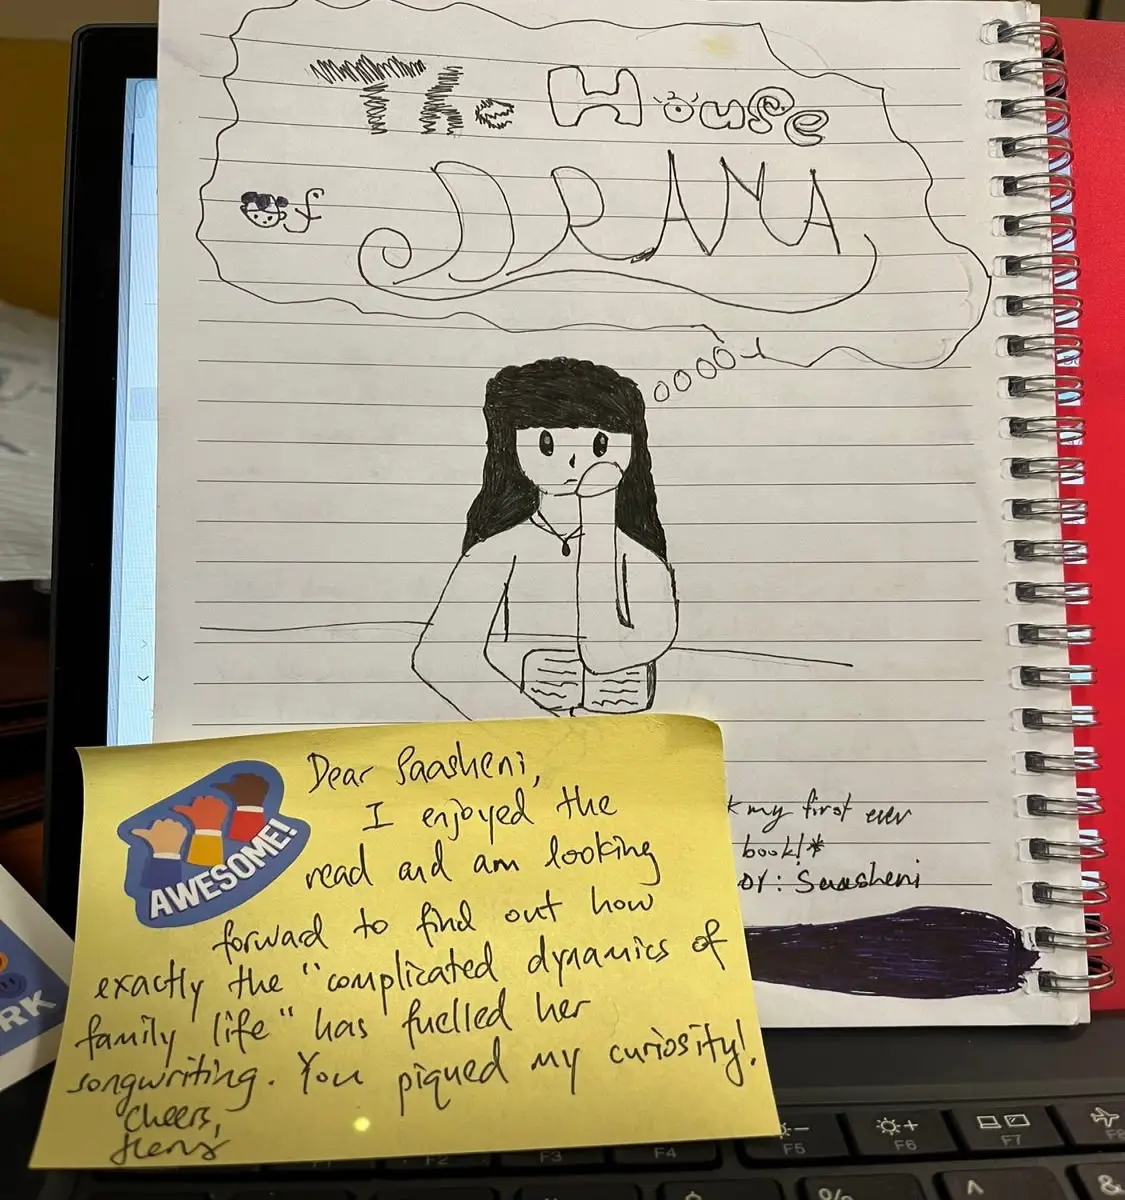 The House
of DRAMA
my first ever
book!*
: Saasheni
AWESOME!
Dear Saasheni,
I enjoyed the
read and am looking
forward to find out how
exactly the "complicated dynamics of
family life" has fuelled her
songwriting. You piqued my curiosity!
Cheers,
RK
F2
F3
F4
F5
F6
F7
F8
%
^
&